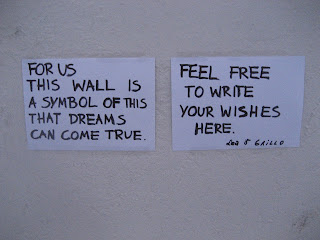 FOR US
THIS WALL IS
A SYMBOL OF THIS
THAT DREAMS
CAN COME TRUE.
FEEL FREE
TO WRITE
YOUR WISHES
HERE.
GRILLO